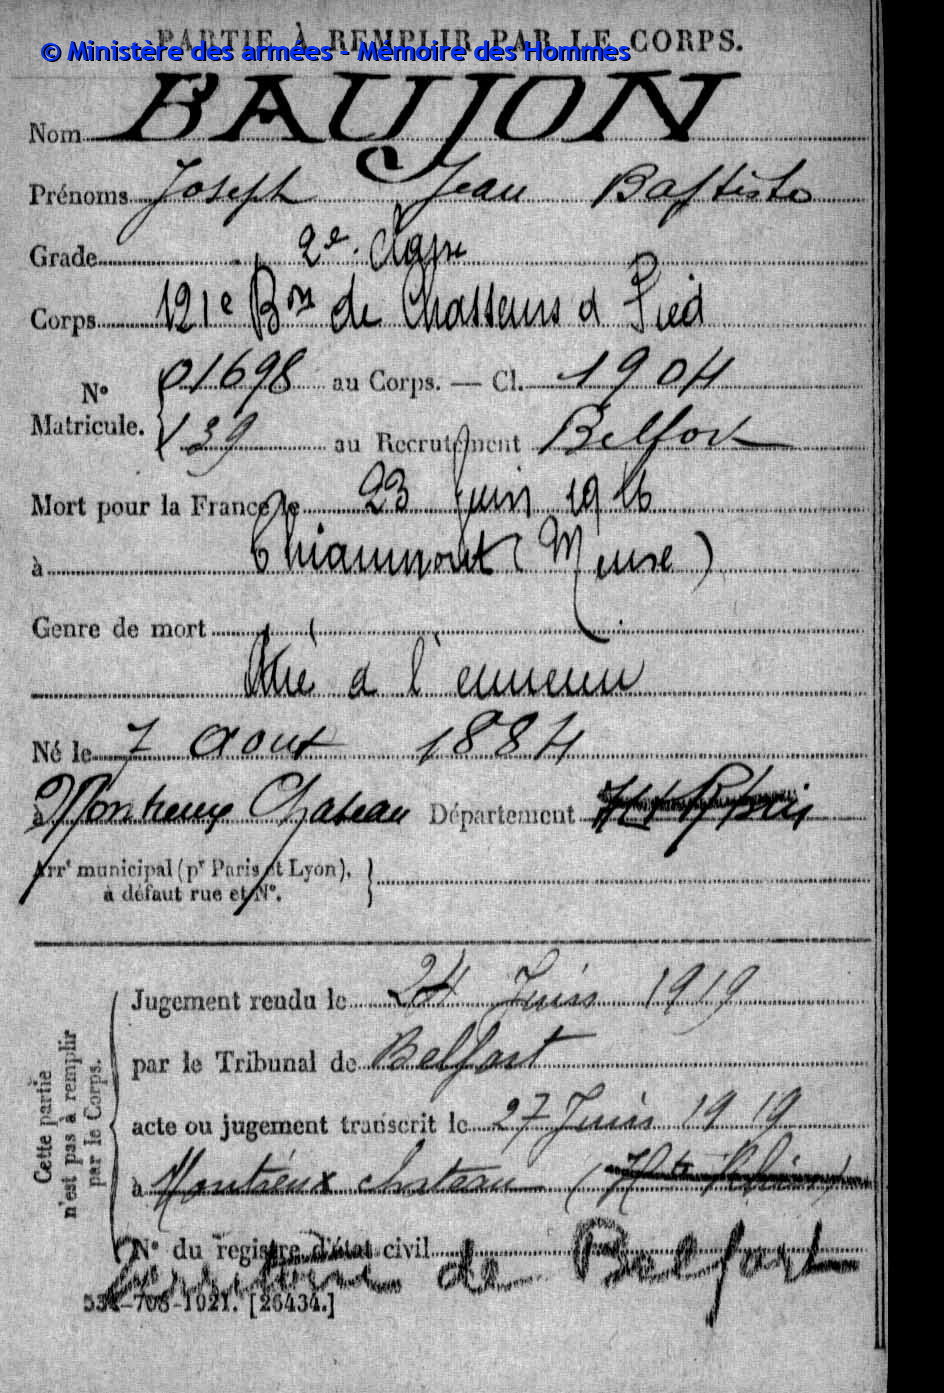 PARTIE À REMPLIR PAR LE CORPS.
© Ministère des armées - Mémoire des Hommes
Nom BAUJON
Prénoms Joseph Jean Baptiste
Grade 2e Classe
Corps 121e Bon de Chasseurs à Pied
N° Matricule. 01698 au Corps. — Cl. 1904
139 au Recrutement Belfort
Mort pour la France le 23 Juin 1916
à Thiaumont (Meuse)
Genre de mort
Tué à l'ennemi
Né le 7 Aout 1884
à Montreux Chateau Département Ht Rhin
Arrt municipal (pr Paris et Lyon),
à défaut rue et N°.
Cette partie
n'est pas à remplir
par le Corps.
Jugement rendu le 24 Juin 1919
par le Tribunal de Belfort
acte ou jugement transcrit le 27 Juin 1919
à Montreux chateau (Ht Rhin)
N° du registre d'état civil
Territoire de Belfort
534-708-1921. [26434.]